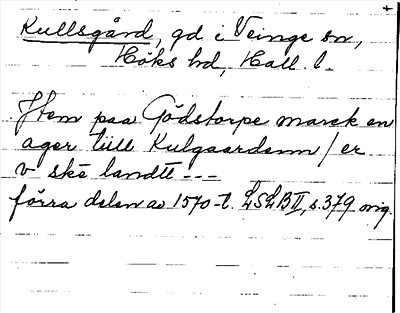 Kullsgård, gd. i Veinge sn,
Höks hd, Hall. l.
Item paa Gödstorpe marck en
ager till Kulgaardenn / er
v ske landtt ---
förra delen av 1570-t. LSLB II, s. 379 orig.